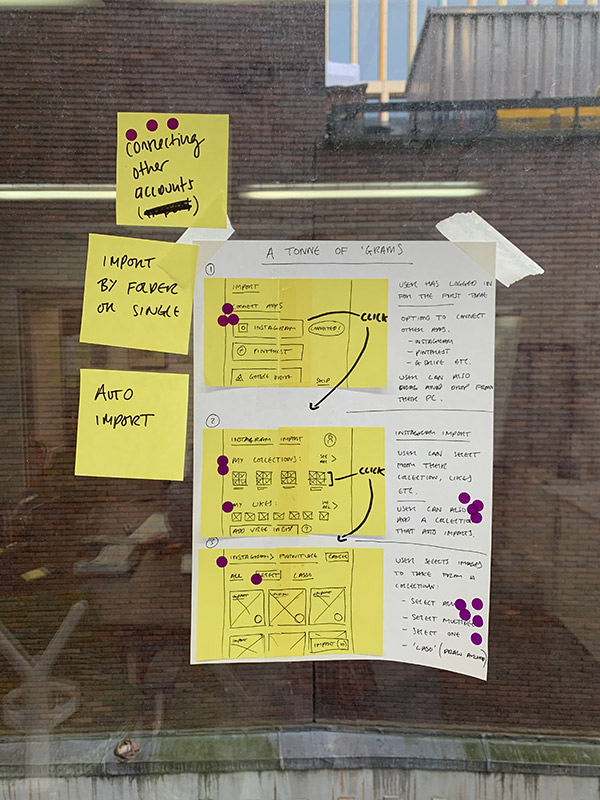 Connecting
other
accounts
IMPORT
BY FOLDER
OR SINGLE
AUTO
IMPORT
A TONNE OF 'GRAMS
1
IMPORT
CONNECT APPS
INSTAGRAM
CONNECTED!
PINTEREST
GOOGLE DRIVE
SKIP
CLICK
USER HAS LOGGED IN
FOR THE FIRST TIME
OPTIONS TO CONNECT
OTHER APPS.
- INSTAGRAM
- PINTEREST
- G DRIVE ETC.
USER CAN ALSO
DRAG AND DROP FROM
THEIR PC.
2
INSTAGRAM IMPORT
MY COLLECTIONS:
SEE
ALL >
MY LIKES:
SEE
ALL >
?
CLICK
INSTAGRAM IMPORT
USER CAN SELECT
FROM THEIR
COLLECTION, LIKES
ETC.
USER CAN ALSO
ADD A COLLECTION
THAT AUTO IMPORTS.
3
INSTAGRAM > FURNITURE
CANCEL
ALL SELECT LASSO
IMPORT
USER SELECTS IMAGES
TO TAKE FROM A
COLLECTION:
- SELECT ALL
- SELECT MULTIPLE
- SELECT ONE
- 'LASSO' (DRAW AROUND)